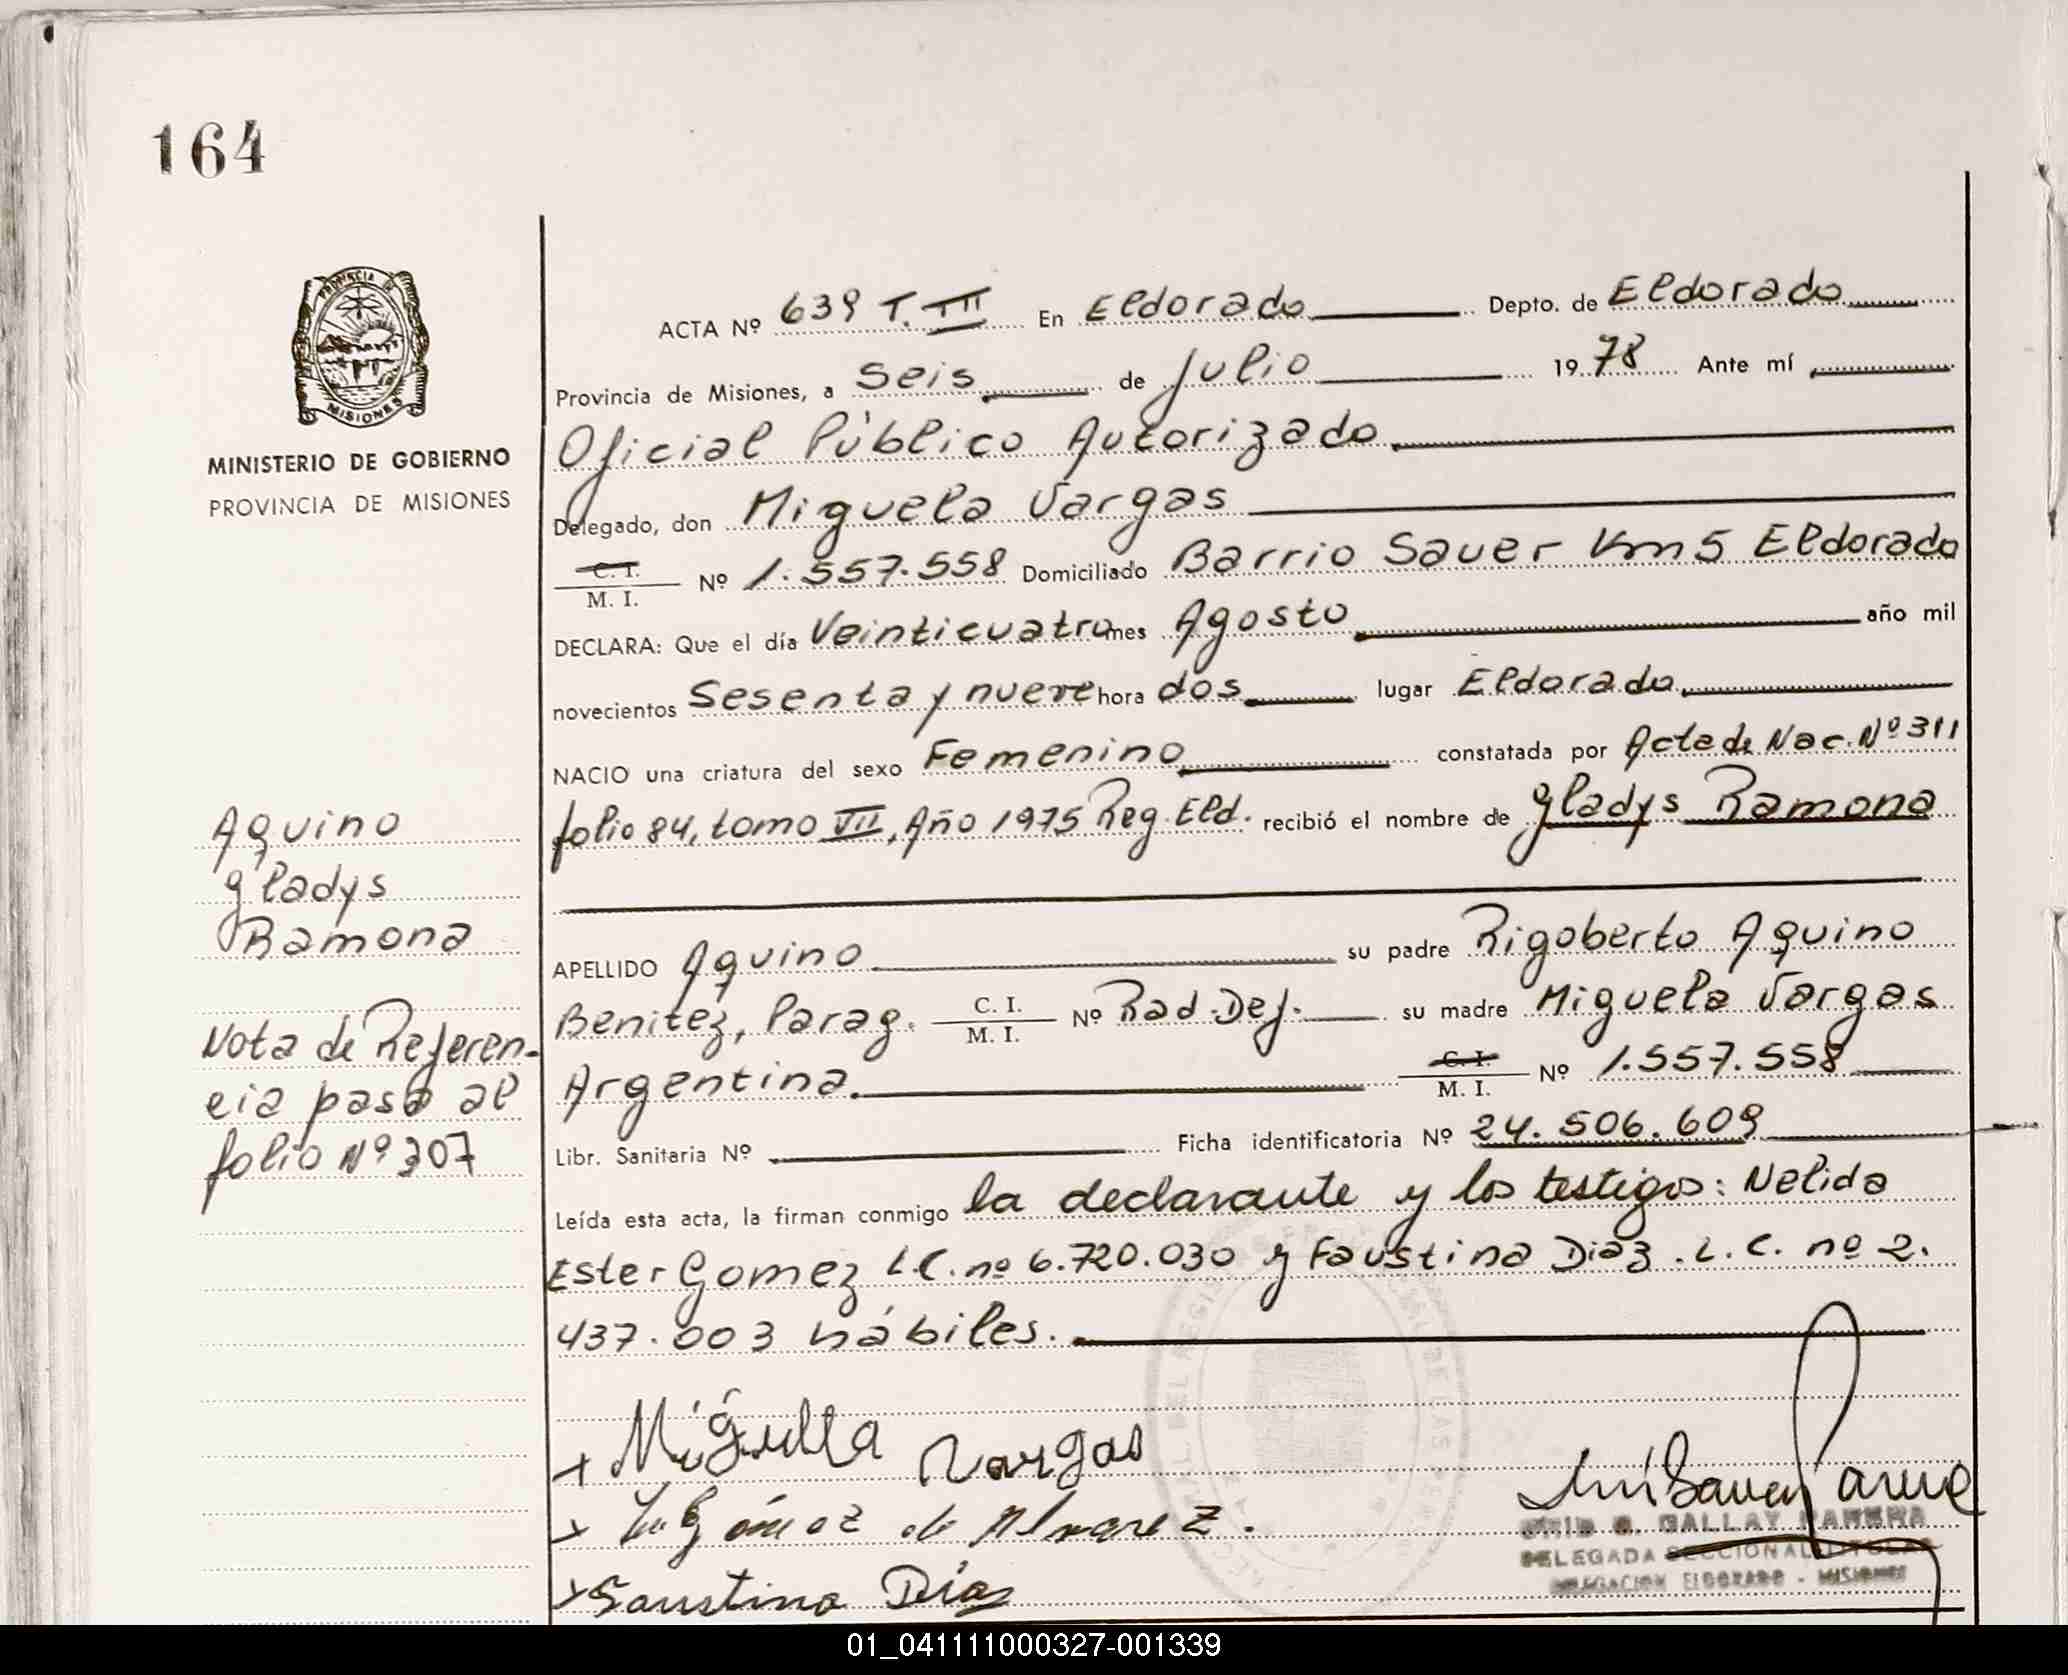 164
PROVINCIA DE
MISIONES
MINISTERIO DE GOBIERNO
PROVINCIA DE MISIONES
ACTA Nº 639 T. III En Eldorado Depto. de Eldorado
Provincia de Misiones, a Seis de Julio 1978 Ante mí
Oficial Público Autorizado
Delegado, don Miguela Vargas
C. I.
M. I. Nº 1.557.558 Domiciliado Barrio Sauer Km 5 Eldorado
DECLARA: Que el día Veinticuatro mes Agosto año mil
novecientos Sesenta y nueve hora dos lugar Eldorado
NACIO una criatura del sexo Femenino constatada por Acta de Nac. Nº 311
folio 84, tomo VII, Año 1975 Reg. Eld. recibió el nombre de Gladys Ramona
APELLIDO Aquino su padre Rigoberto Aquino
Benitez, Parag. C. I.
M. I. Nº Rad. Def. su madre Miguela Vargas
Argentina. C. I.
M. I. Nº 1.557.558
Libr. Sanitaria Nº Ficha identificatoria Nº 24.506.609
Leída esta acta, la firman conmigo la declarante y los testigos: Nelida
Ester Gomez L.C. nº 6.720.030 y Faustina Diaz. L.C. nº 2.
437.003 hábiles.
Aquino
Gladys
Ramona
Nota de Referen-
cia pasa al
folio Nº 307
Miguela Vargas
Gómez de Alvarez.
Faustina Diaz
GALLAY
DELEGADA SECCIONAL
DELEGACION ELDORADO - MISIONES
01_041111000327-001339